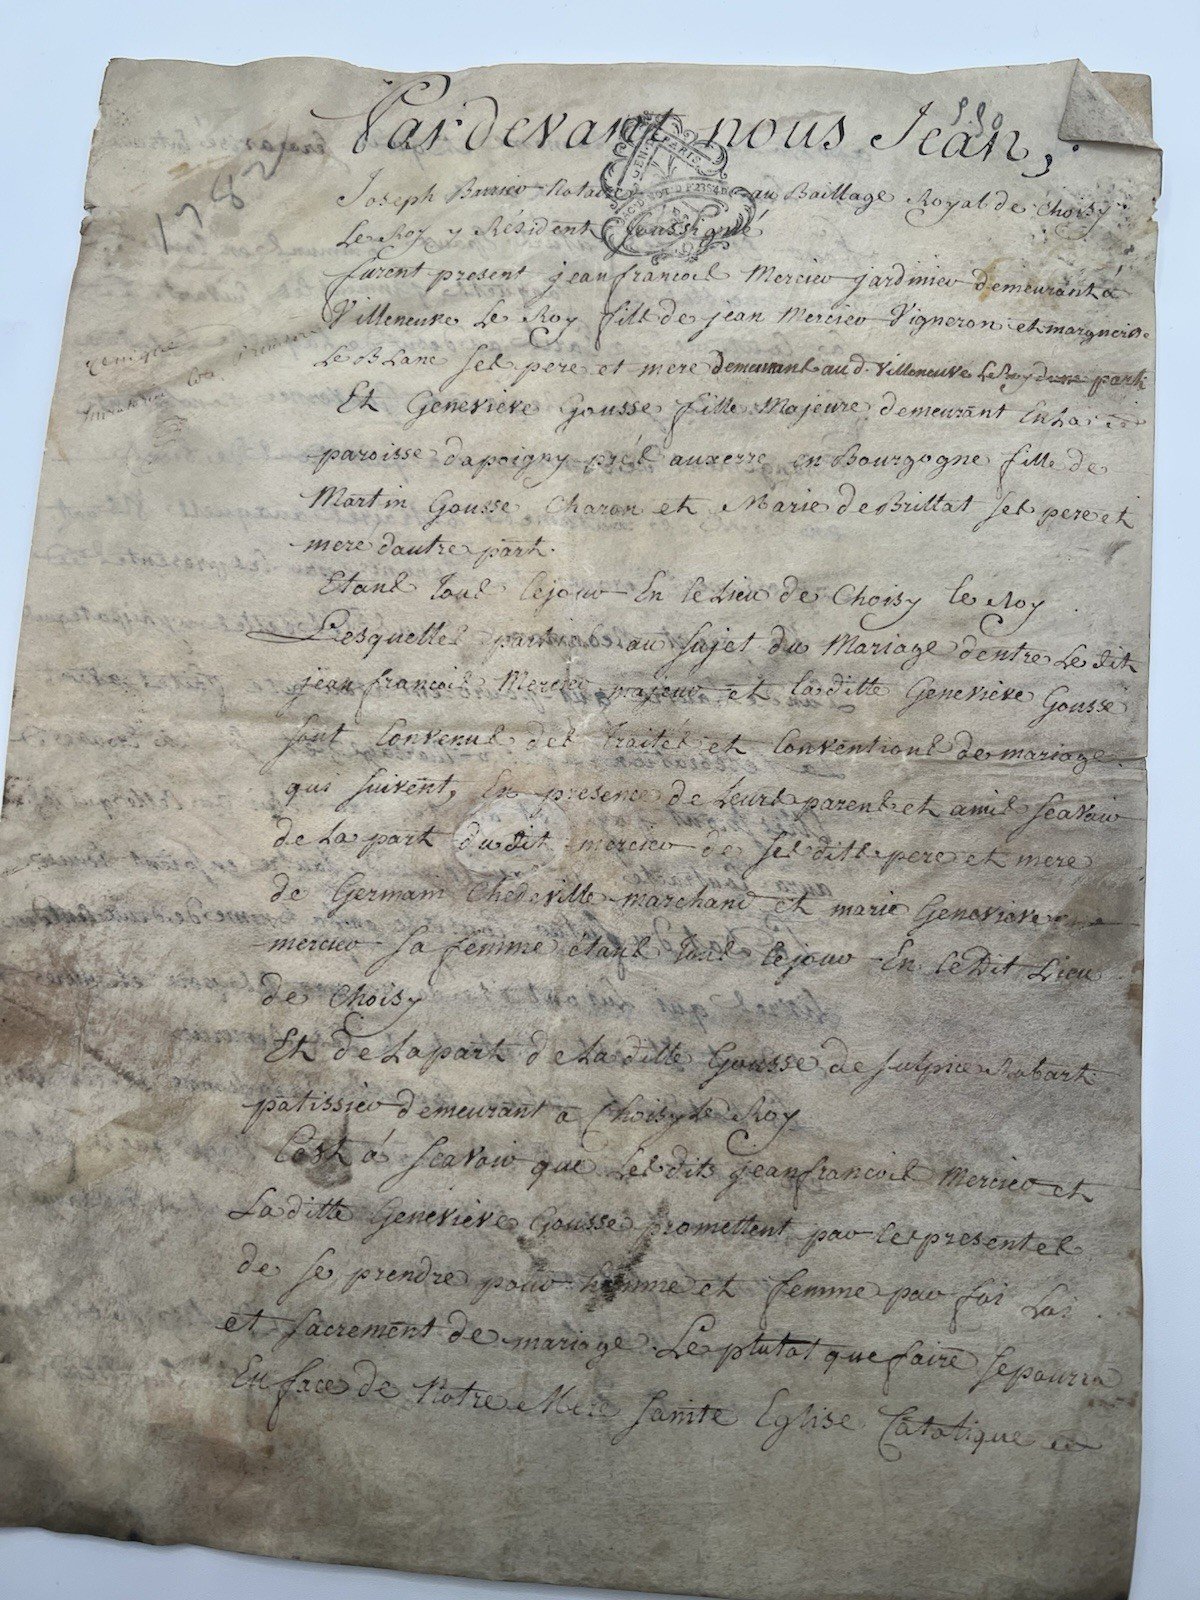 Pardevant nous Jean,
1782
Joseph Notaire au Baillage Royal de Choisy
Le Roy y Résident soussigné
furent present jean francois Mercier jardinier demeurant á
Villeneuve Le Roy fils de jean Mercier Vigneron et marguerite
Le Blanc ses pere et mere demeurant aud. Villeneuve Le Roy dune part
Et Genevieve Gousse fille Majeure demeurant En La
paroisse dapoigny prés auxerre en Bourgogne fille de
Martin Gousse Charon et Marie de Brillat ses pere et
mere dautre part.
Etant Tous cejour En ce Lieu de Choisy le Roy
Lesquelles parties au sujet du Mariage dentre Le dit
jean francois Mercier majeur et laditte Genevieve Gousse
sont Convenus des Traités et Conventions de mariage
qui suivent, En presence de Leurs parens et amis Scavoir
de La part dudit mercier de ses dits pere et mere
de Germain Chedeville marchand et marie Genevieve
mercier sa femme étant Tous cejour En ce Dit Lieu
de Choisy
Et de Lapart de La ditte Gousse de sulpice Robart
patissier demeurant a Choisy Le Roy
Cest á scavoir que Lesdits jean francois Mercier et
Laditte Genevieve Gousse promettent par ces presentes
de se prendre pour homme et femme par foi Loi
et sacrement de mariage Le plutot que faire se poura
En face de Notre Mere sainte Eglise Catolique